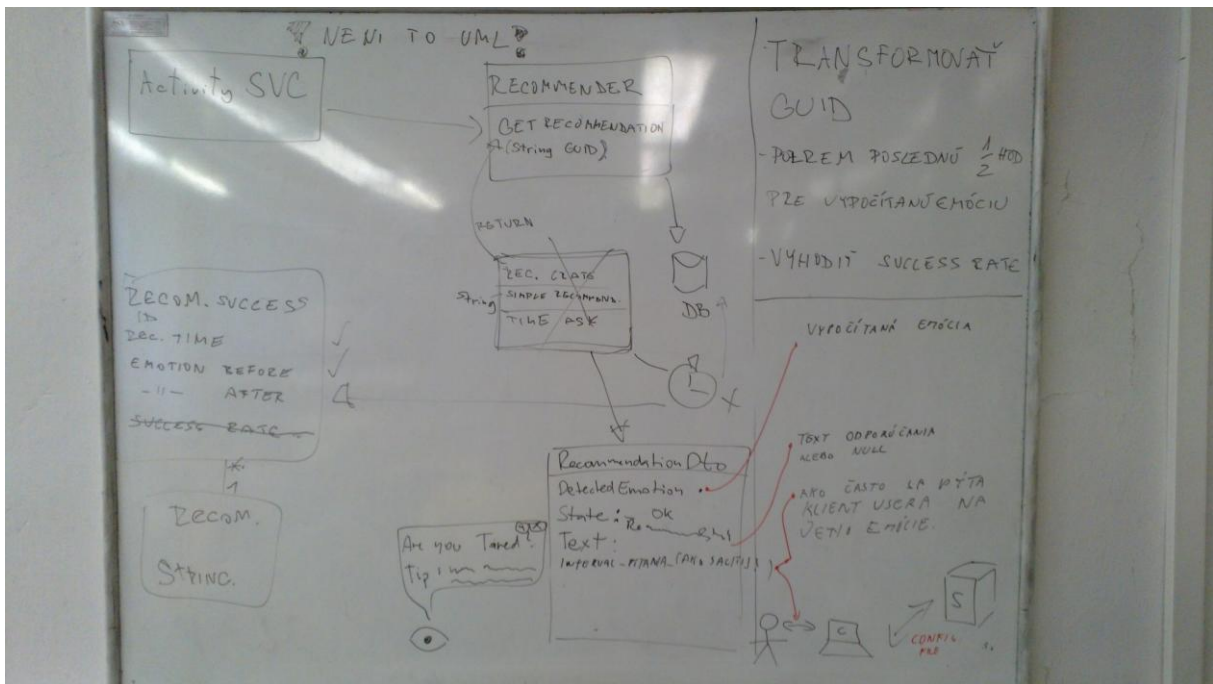 NENI TO UML
Activity SVC
RECOMMENDER
GET RECOMMENDATION
(String GUID)
RETURN
REC. CRATE
SIMPLE RECOMMEND.
TIME ASK
String
DB
RECOM. SUCCESS
ID
REC. TIME
EMOTION BEFORE
-"- AFTER
SUCCESS RATE
*
1
RECOM.
STRING.
RecommendationDto
DetectedEmotion
State: OK
Text:
Are you Tared?
Tip:
TRANSFORMOVAŤ
GUID
- POZREM POSLEDNÚ 1/2 HOD
PRE VYPOČÍTANÚ EMÓCIU
- VYHODIŤ SUCCESS RATE
VYPOČÍTANÁ EMÓCIA
TEXT ODPORÚČANIA
ALEBO NULL
AKO ČASTO SA PÝTA
KLIENT USERA NA
JEHO EMÓCIE.
C
S
CONFIG